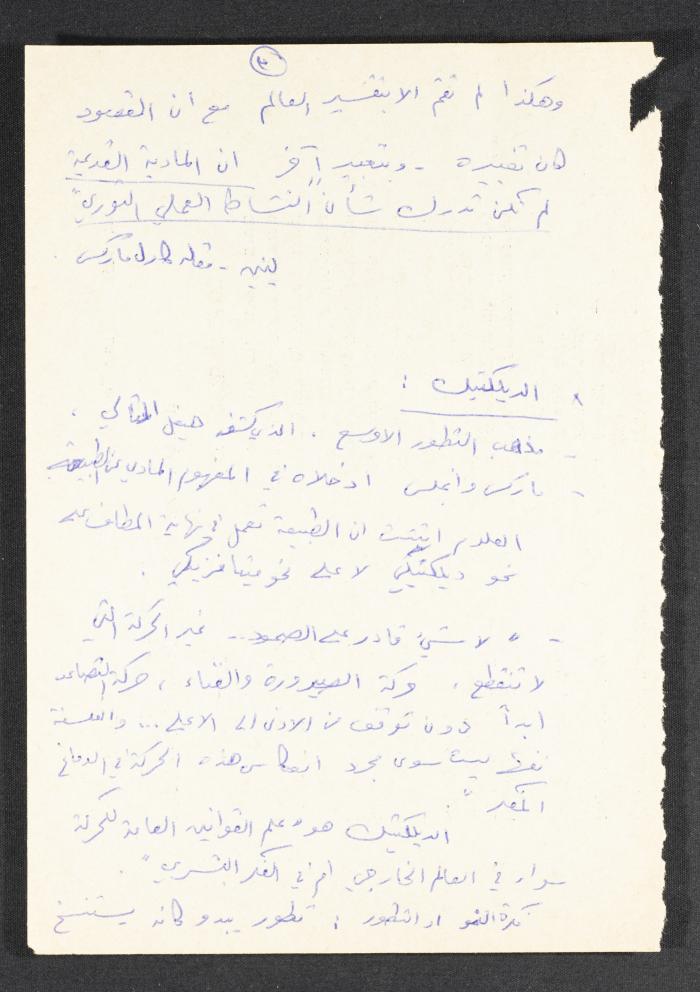 ٣
وهكذا لم تقم الا بتفسير العالم مع أن المقصود
كان تغييره - وبتعبير آخر ان المادية القديمة
لم تكن تدرك شأن "النشاط العملي الثوري"
لينين - مقله كارل ماركس
الديالكتيك :
- مذهب التطور الاوسع . الذي كشفه هيغل المثالي .
- ماركس وانجلس ادخلاه في المفهوم المادي عن الطبيعة
العلوم اثبتت ان الطبيعة تعمل في نهاية المطاف على
نحو ديالكتيكي لا على نحو ميتافزيكي .
- " لا شيئ قادر على الصمود .. غير الحركة التي
لا تنقطع ، حركة الصيرورة والفناء ، حركة التصاعد
ابدأ دون توقف من الادنى الى الاعلى ... والفلسفة
نفسها ليست سوى مجرد انعكاس هذه الحركة في الدماغ
المفكر "
الديالكتيك هو " علم القوانين العامة للحركة
سواء في العالم الخارجي أم في الفكر البشري " .
فكرة النمو او التطور : تطور يبدو كانه يستنسخ